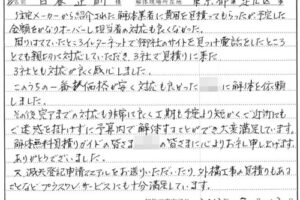 住宅メーカーから紹介された解体業者に費用を見積ってもらったが予定した
金額をかなりオーバーし担当者の対応も良くなかった。
困りはてていたところインターネットで御社のサイトを見つけ電話をしたところ
とても親切に対応していただき、3社で見積りに来た
3社とも対応が良く感心しました。
このうちの一番価格が安く対応も良かった に解体を依頼
しました。
その後完了までの対応も非常に良く工期も予定より短かくご近所にも
ご迷惑を掛けずに予算内で解体することができ大変満足しています。
解体無料見積ガイドの皆さま の皆さまに心よりお礼申し上げます。
ありがとうございました。
又、滅失登記申請マニュアルをお送りいただいたり、外構工事の見積りもある
ことなどプラスワンサービスにも十分満足しています。